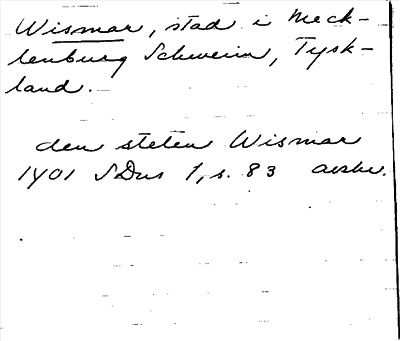 Wismar, stad i Meck-
lenburg Schwerin, Tysk-
land.
den steten Wismar
1401 SDns 1, s. 83 avskr.